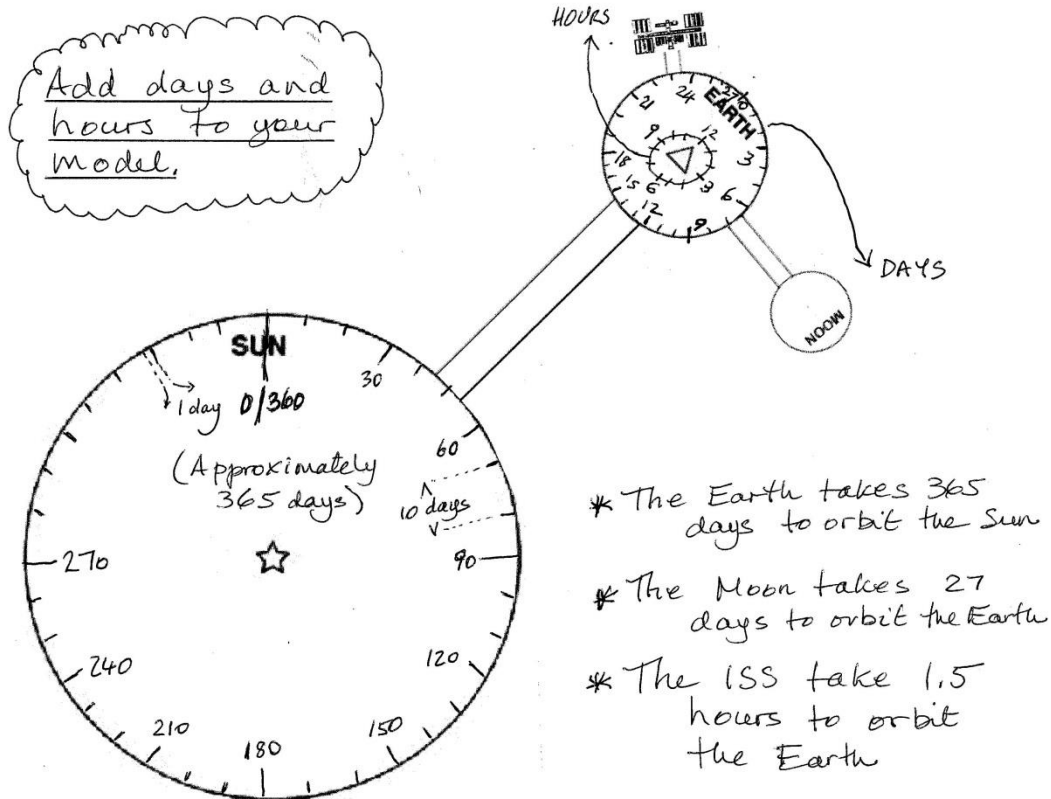 Add days and
hours to your
model.
HOURS
24
27/0
EARTH
3
6
9
12
15
18
21
12
3
6
9
DAYS
MOON
SUN
0/360
1 day
(Approximately
365 days)
30
60
10 days
90
120
150
180
210
240
270
* The Earth takes 365
days to orbit the Sun
* The Moon takes 27
days to orbit the Earth
* The ISS take 1.5
hours to orbit
the Earth